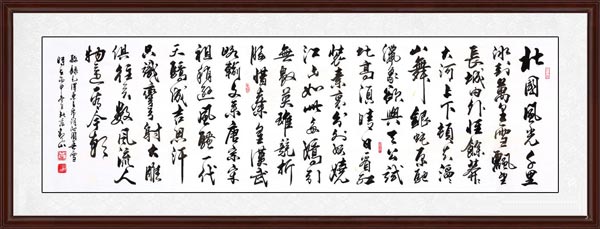 北國風光千里
冰封萬里雪飄望
長城内外惟餘莽莽
大河上下頓失滔滔
山舞銀蛇原馳
蠟象欲與天公試
比高須晴日看紅
裝素裹分外妖嬈
江山如此多嬌引
無數英雄競折
腰惜秦皇漢武
略輸文采唐宗宋
祖稍遜風騷一代
天驕成吉思汗
只識彎弓射大雕
俱往矣數風流人
物還看今朝
敬録毛澤東主席沁園春雪